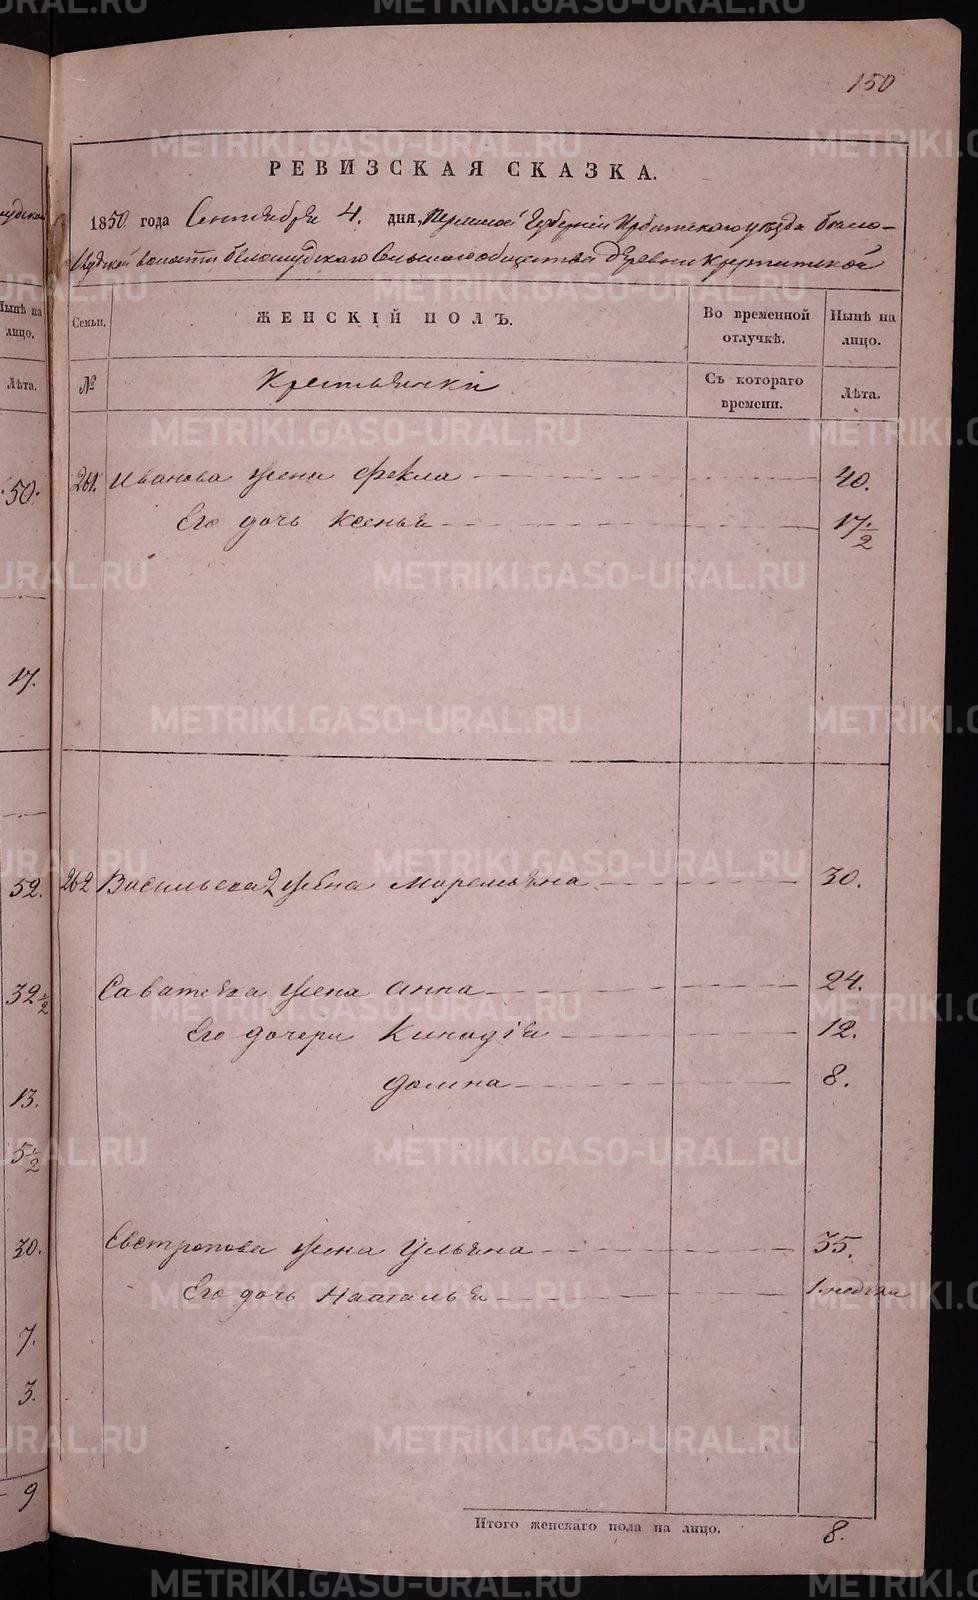 150
РЕВИЗСКАЯ СКАЗКА.
1850 года Сентября 4. дня, Пермской Губерніи Ирбитскаго уѣзда Бѣло-
слудской волости Белослудскаго Сельскаго общества деревни
Семьи.
ЖЕНСКІЙ ПОЛЪ.
Во временной отлучкѣ.
Нынѣ на лицо.
№
Крестьянки
Съ котораго времени.
Лѣта.
261. Иванова жена Фекла 40.
Его дочь Ксенья 17 1/2
262 Васильева 2 жена Маремьяна 30.
Саватеева жена Анна 24.
Его дочери 12.
8.
Евстропова жена Ульяна 35.
Его дочь Наталья 1. недели
Итого женскаго пола на лицо. 8.
Нынѣ на лицо.
Лѣта.
50.
17.
52.
32 1/2
13.
5 1/2
30.
7.
3.
9
METRIKI.GASO-URAL.RU